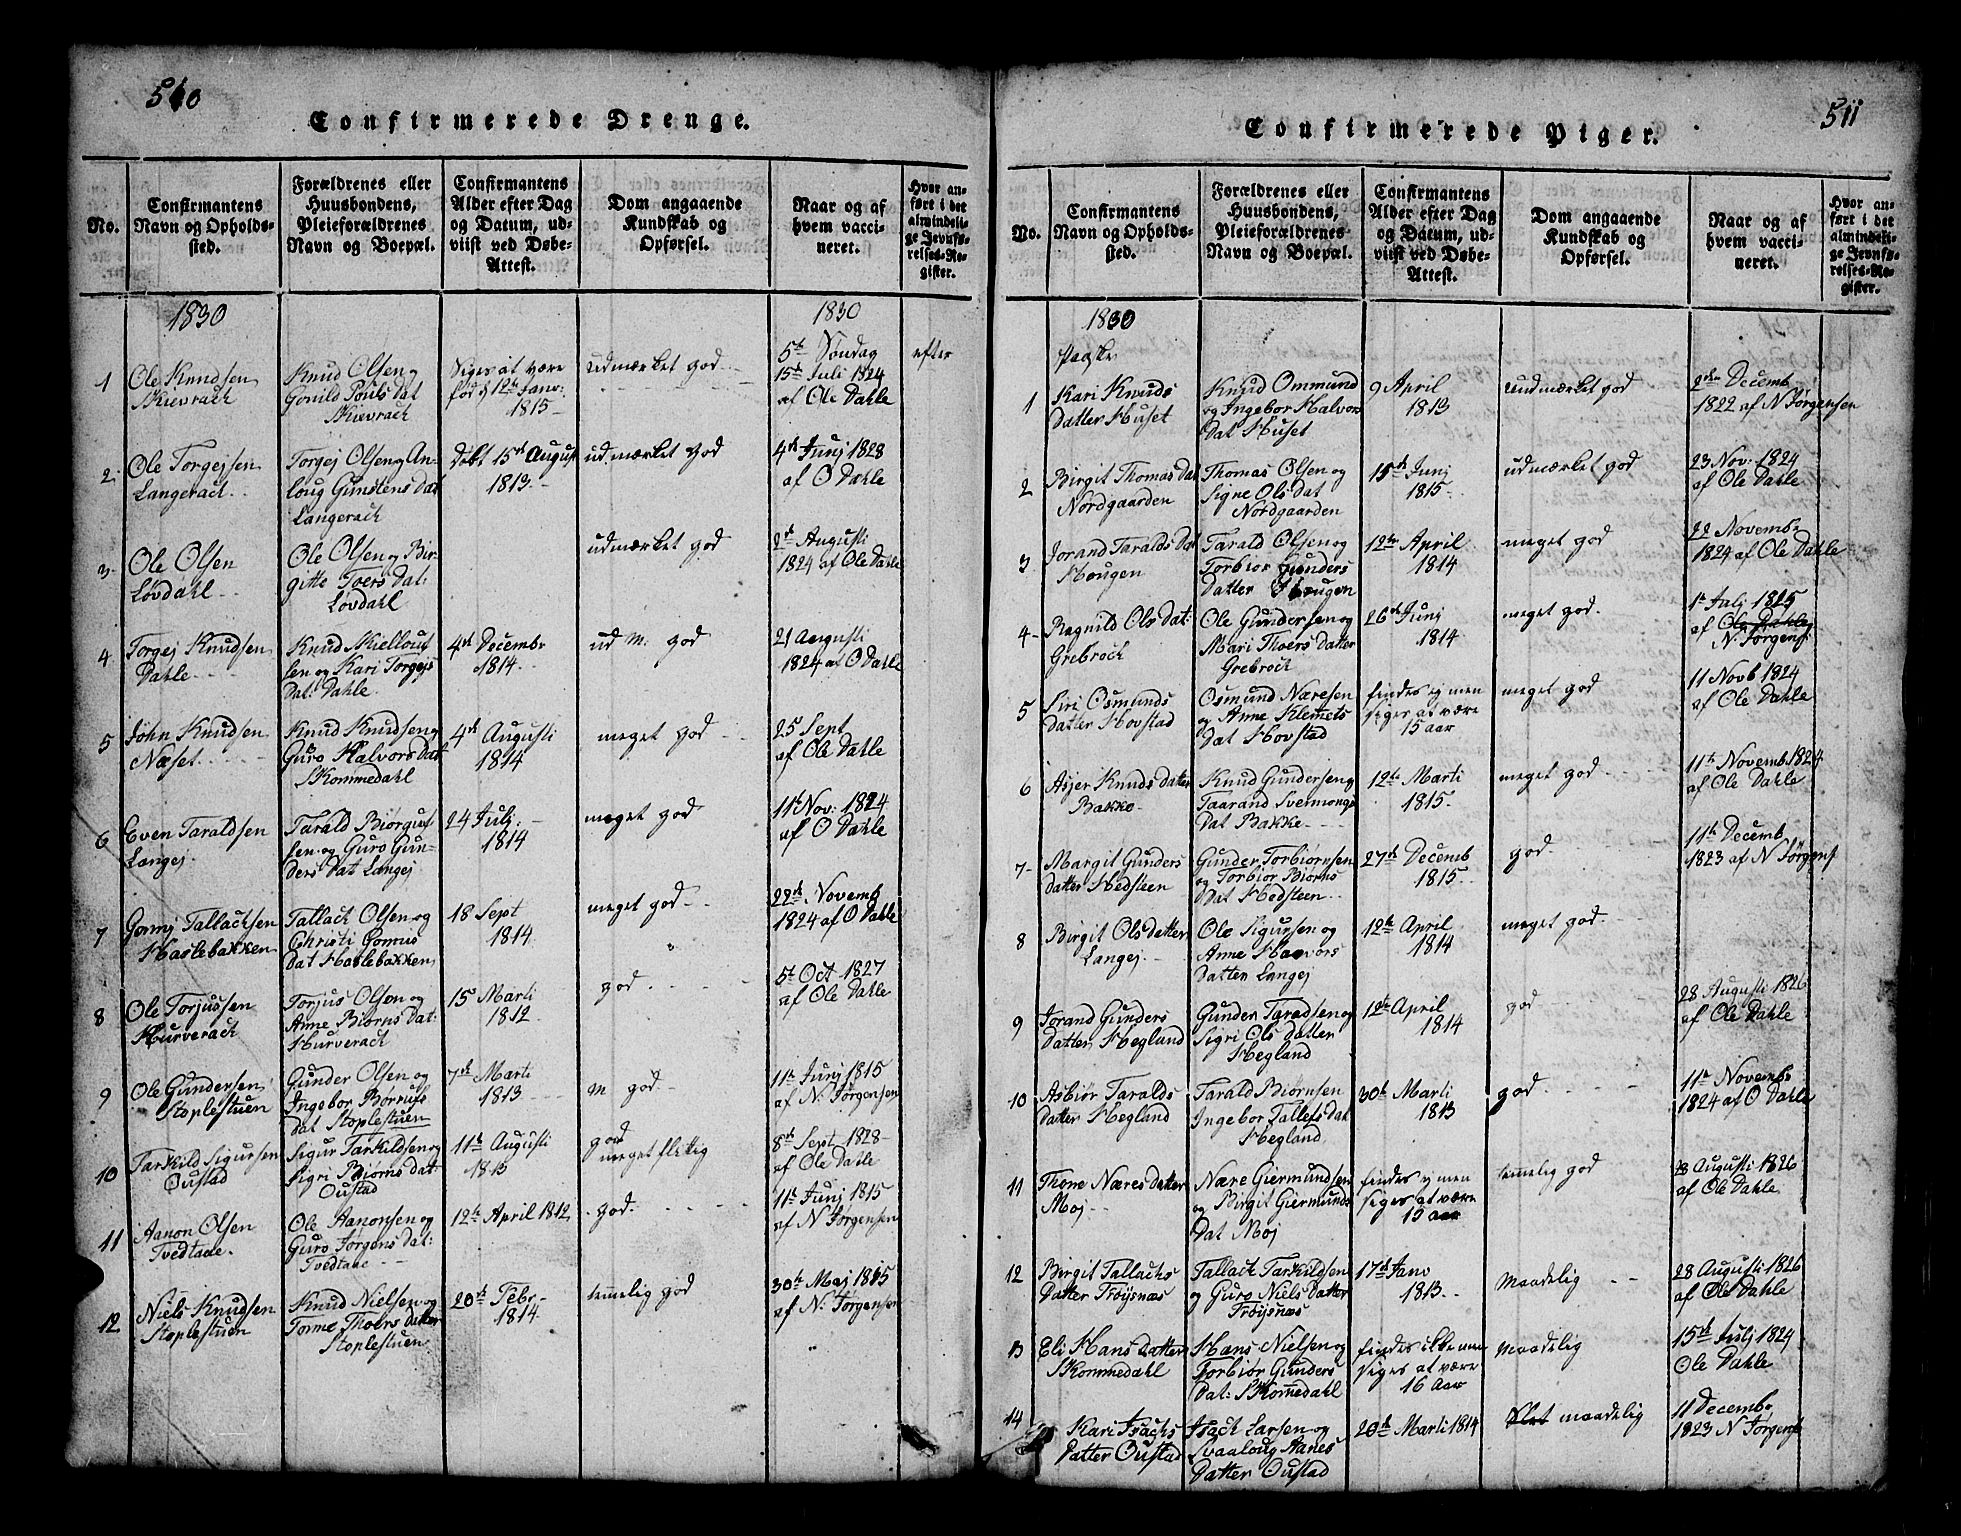 510
Confirmerede Drenge.
No.
Confirmantens
Navn og Opholds-
sted.
Forældrenes eller
Huusbondens,
Pleieforældrenes
Navn og Boepæl.
Confirmantens
Alder efter Dag
og Datum, ud-
viist ved Døbe-
Attest.
Dom angaaende
Kundskab og
Opførsel.
Naar og af
hvem vacci-
neret.
Hvor an-
ført i det
almindeli-
ge Jevnfø-
relses-Re-
gister.
1830
1830
5te Søndag efter
1
Ole Knudsen
Kievrach
Knud Olsen og
Gonild Pouls Dat
Kievrach
Siges at være
fød 12te Janv:
1815
udmærket god
15de Juli 1824
af Ole Dahle
2
Ole Torgejsen
Langerach
Torgej Olsen og An-
loug Gunstens Dat
Langerach
Døbt 15de August
1813
udmærket god
4de Junj 1828
af O Dahle
3
Ole Olsen
Løvdahl
Ole Olsen og Bir-
gitte Toers Dat:
Løvdahl
udmærket god
2de Augusti
1824 af Ole Dahle
4
Torgej Knudsen
Dahle
Knud Kiellouf
sen og Kari Torgejs
Dat: Dahle
4de Decembr
1814
udm. god
21 Augusti
1824 af O Dahle
5
John Knudsen
Næset
Knud Knudsen og
Guro Halvors Dat
Kommedahl
4de Augusti
1814
meget god
25 Sept
af Ole Dahle
6
Even Taraldsen
Langej
Tarald Biørguf
sen og Guro Gun-
ders Dat Langej
24 Julj
1814
meget god
11te Nov: 1824
af O Dahle
7
Gonnj Tallachsen
Haslebakken
Tallach Olsen og
Christi Gomus
Dat Haslebakken
18 Sept
1814
meget god
22de Novemb
1824 af O Dahle
8
Ole Torjussen
Hurverach
Torjus Olsen og
Anne Biørns Dat:
Hurverach
15 Marti
1812
god
5te Oct 1827
af Ole Dahle
9
Ole Gundersen
Stoplestuen
Gunder Olsen og
Ingebor Borrufs
Dat Stoplestuen
7de Marti
1813
m god
11te Junj 1815
af N: Jørgensen
10
Tarkild Sigursen
Oustad
Sigur Tarkildsen og
Sigri Biørns Dat:
Oustad
11te Augusti
1813
god
meget flitig
8de Sept 1828
af Ole Dahle
11
Aanon Olsen
Tvedtane
Ole Aanonsen og
Guro Jørgens Dat:
Tvedtane
12te April 1812
god
11te Junj 1815
af N Jørgensen
12
Niels Knudsen
Stoplestuen
Knud Nielsen og
Torne Thoers datter
Stoplestuen
20de Febr
1814
temmelig god
30te Maj 1815
af N: Jørgensen
511
Confirmerede Piger.
No.
Confirmantens
Navn og Opholds-
sted.
Forældrenes eller
Huusbondens,
Pleieforældrenes
Navn og Boepæl.
Confirmantens
Alder efter Dag
og Datum, ud-
viist ved Døbe-
Attest.
Dom angaaende
Kundskab og
Opførsel.
Naar og af
hvem vacci-
neret.
Hvor an-
ført i det
almindeli-
ge Jevnfø-
relses-Re-
gister.
1830
Paaske
1
Kari Knuds
Datter Huset
Knud Ommund
og Ingebor Halvors
Dat Huset
9 April
1813
udmærket god
9de Decemb
1822 af N Jørgensen
2
Birgit Thomas Dat
Nordgaarden
Thomas Olsen og
Signe Ols Dat
Nordgaarden
15de Junj
1815
udmærket god
23 Nov: 1824
af Ole Dahle
3
Jorand Taralds Dat
Hougen
Tarald Olsen og
Torbior Gunders
Datter Hougen
12te April
1814
meget god
22 Novembr
1824 af Ole Dahle
4
Ragnild Ols Dat:
Grebroch
Ole Gundersen og
Mari Thoers Datter
Grebroch
26de Junj
1814
meget god
1te Julj 1815
af Ole Dahle
N Jørgens
5
Siri Osmunds
Datter Hovstad
Osmund Næresen
og Anne Klemets
Dat Hovstad
findes ej men
siges at være
15 aar
meget god
11 Novb 1824
af Ole Dahle
6
Asjer Knuds datter
Bakke
Knud Gundersen og
Taarand Svermongs
Dat Bakke
12te Marti
1815
meget god
11te Novemb 1824
af Ole Dahle
7
Margit Gunders
datter Hedsteen
Gunder Torbiørnsen
og Torbior Biørns
Dat Hedsteen
27de Decemb
1815
god
11te Decemb
1823 af N Jørgens
8
Birgit Olsdatter
Langej
Ole Sigursen og
Anne Halvors
datter Langej
12te April
1814
meget god
9
Jorand Gunders
Datter Hegland
Gunder Taraldsen og
Sigri Ols Datter
Hegland
12te April
1814
god
28 Augusti 1826
af Ole Dahle
10
Asbiør Taralds
Datter Hegland
Tarald Biørnsen
Ingebor Tallefs Dat
Hegland
30te Marti
1813
god
11te Novembr
1824 af O Dahle
11
Thone Næres datter
Moj
Nære Giermundsen
og Birgit Giermunds
Dat Moj
findes ej men
siges at være
15 aar
temmelig god
28 Augusti 1826
af Ole Dahle
12
Birgit Tallachs
Datter Frøysnæs
Tallach Tarkildsen
og Guro Niels Datter
Frøysnæs
17de Janv
1813
Maadelig
28 Augusti 1826
af Ole Dahle
13
Eli Hans Datter
Kommedahl
Hans Nielsen og
Torbior Gunders
Dat: Komedahl
findes ikke men
siges at være
16 Aar
Maadelig
15de Julj 1824
Ole Dahle
14
Kari Isachs
Datter Oustad
Isach Larsen og
Svaaloug Aanes
Datter Oustad
20de Marti 1814
Slet maadelig
11 Decembr
1823 N Jørgens